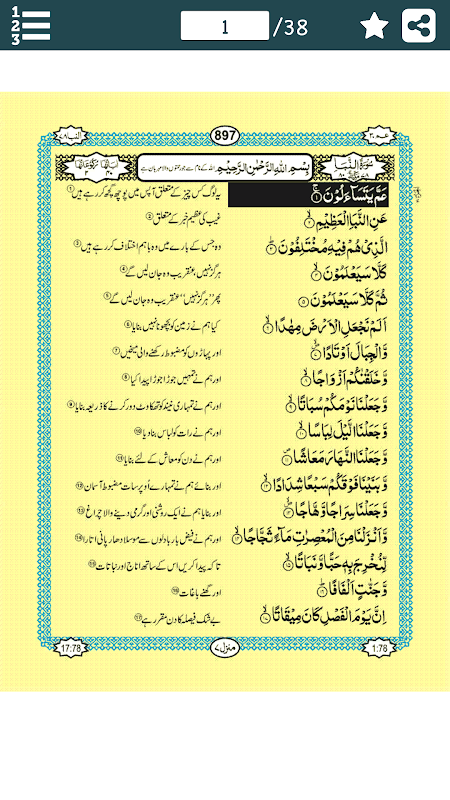 1 2 3
1 /38
عم ٣٠
897
النبا ٧٨
سُوۡرَةُ النَّبَاِ
بِسۡمِ اللّٰهِ الرَّحۡمٰنِ الرَّحِيۡمِ اللہ کے نام سے جو رحمتوں والا مہربان ہے
عَمَّ يَتَسَآءَلُوۡنَ ۚ‏ ۱ یہ لوگ کس چیز کے متعلق آپس میں پوچھ گچھ کر رہے ہیں ۱
عَنِ النَّبَاِ الۡعَظِيۡمِۙ‏ ۲ غیب کی عظیم خبر کے متعلق ۲
الَّذِىۡ هُمۡ فِيۡهِ مُخۡتَلِفُوۡنَؕ‏ ۳ وہ جس کے بارے میں وہ باہم اختلاف کر رہے ہیں ۳
كَلَّا سَيَعۡلَمُوۡنَۙ‏ ۴ ہرگز نہیں، عنقریب وہ جان لیں گے ۴
ثُمَّ كَلَّا سَيَعۡلَمُوۡنَ‏ ۵ پھر ہرگز نہیں، عنقریب وہ جان لیں گے ۵
اَلَمۡ نَجۡعَلِ الۡاَرۡضَ مِهٰدًاۙ‏ ۶ کیا ہم نے زمین کو بچھونا نہیں بنایا ۶
وَّالۡجِبَالَ اَوۡتَادًاۙ‏ ۷ اور پہاڑوں کو مضبوط رکھنے والی میخیں ۷
وَّخَلَقۡنٰكُمۡ اَزۡوَاجًاۙ‏ ۸ اور ہم نے تمہیں جوڑا جوڑا پیدا کیا ۸
وَّجَعَلۡنَا نَوۡمَكُمۡ سُبَاتًاۙ‏ ۹ اور ہم نے تمہاری نیند کو تھکاوٹ دور کرنے کا ذریعہ بنایا ۹
وَّجَعَلۡنَا الَّيۡلَ لِبَاسًاۙ‏ ۱۰ اور ہم نے رات کو لباس بنا دیا ۱۰
وَّجَعَلۡنَا النَّهَارَ مَعَاشًا ۱۱ اور ہم نے دن کو معاش کے لئے بنایا ۱۱
وَّبَنَيۡنَا فَوۡقَكُمۡ سَبۡعًا شِدَادًاۙ‏ ۱۲ اور بنائے ہم نے تمہارے اُوپر سات مضبوط آسمان ۱۲
وَّجَعَلۡنَا سِرَاجًا وَّهَّاجًاۙ‏ ۱۳ اور بنایا ہم نے ایک روشنی اور گرمی دینے والا چراغ ۱۳
وَّاَنۡزَلۡنَا مِنَ الۡمُعۡصِرٰتِ مَآءً ثَجَّاجًاۙ‏ ۱۴ اور ہم نے فیض بار بادلوں سے موسلا دھار پانی اتارا ۱۴
لِّنُخۡرِجَ بِهٖ حَبًّا وَّنَبَاتًاۙ‏ ۱۵ تاکہ پیدا کریں اس کے ساتھ اناج اور نباتات ۱۵
وَّجَنّٰتٍ اَلۡفَافًاؕ‏ ۱۶ اور گھنے باغات ۱۶
اِنَّ يَوۡمَ الۡفَصۡلِ كَانَ مِيۡقَاتًاۙ‏ ۱۷ بے شک فیصلہ کا دن مقرر ہے ۱۷
1:78
منزل ۷
17:78